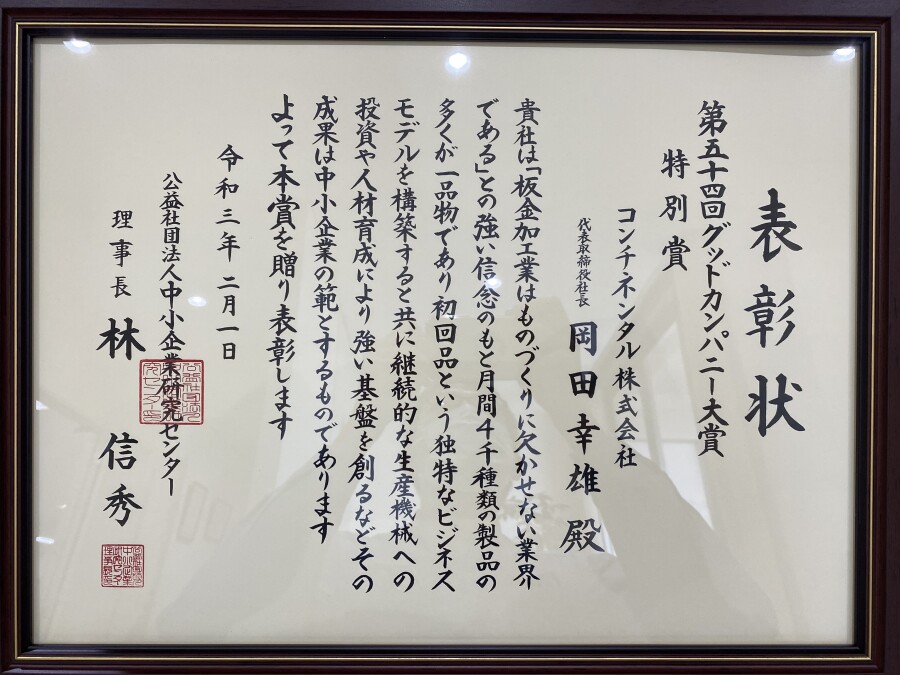 表彰状
第五十四回グッドカンパニー大賞
特別賞
コンチネンタル株式会社
代表取締役社長 岡田幸雄 殿
貴社は「板金加工業はものづくりに欠かせない業界
である」との強い信念のもと月間4千種類の製品の
多くが一品物であり初回品という独特なビジネス
モデルを構築すると共に継続的な生産機械への
投資や人材育成により強い基盤を創るなどその
成果は中小企業の範とするものであります
よって本賞を贈り表彰します
令和三年二月一日
公益社団法人中小企業研究センター
理事長 林 信秀